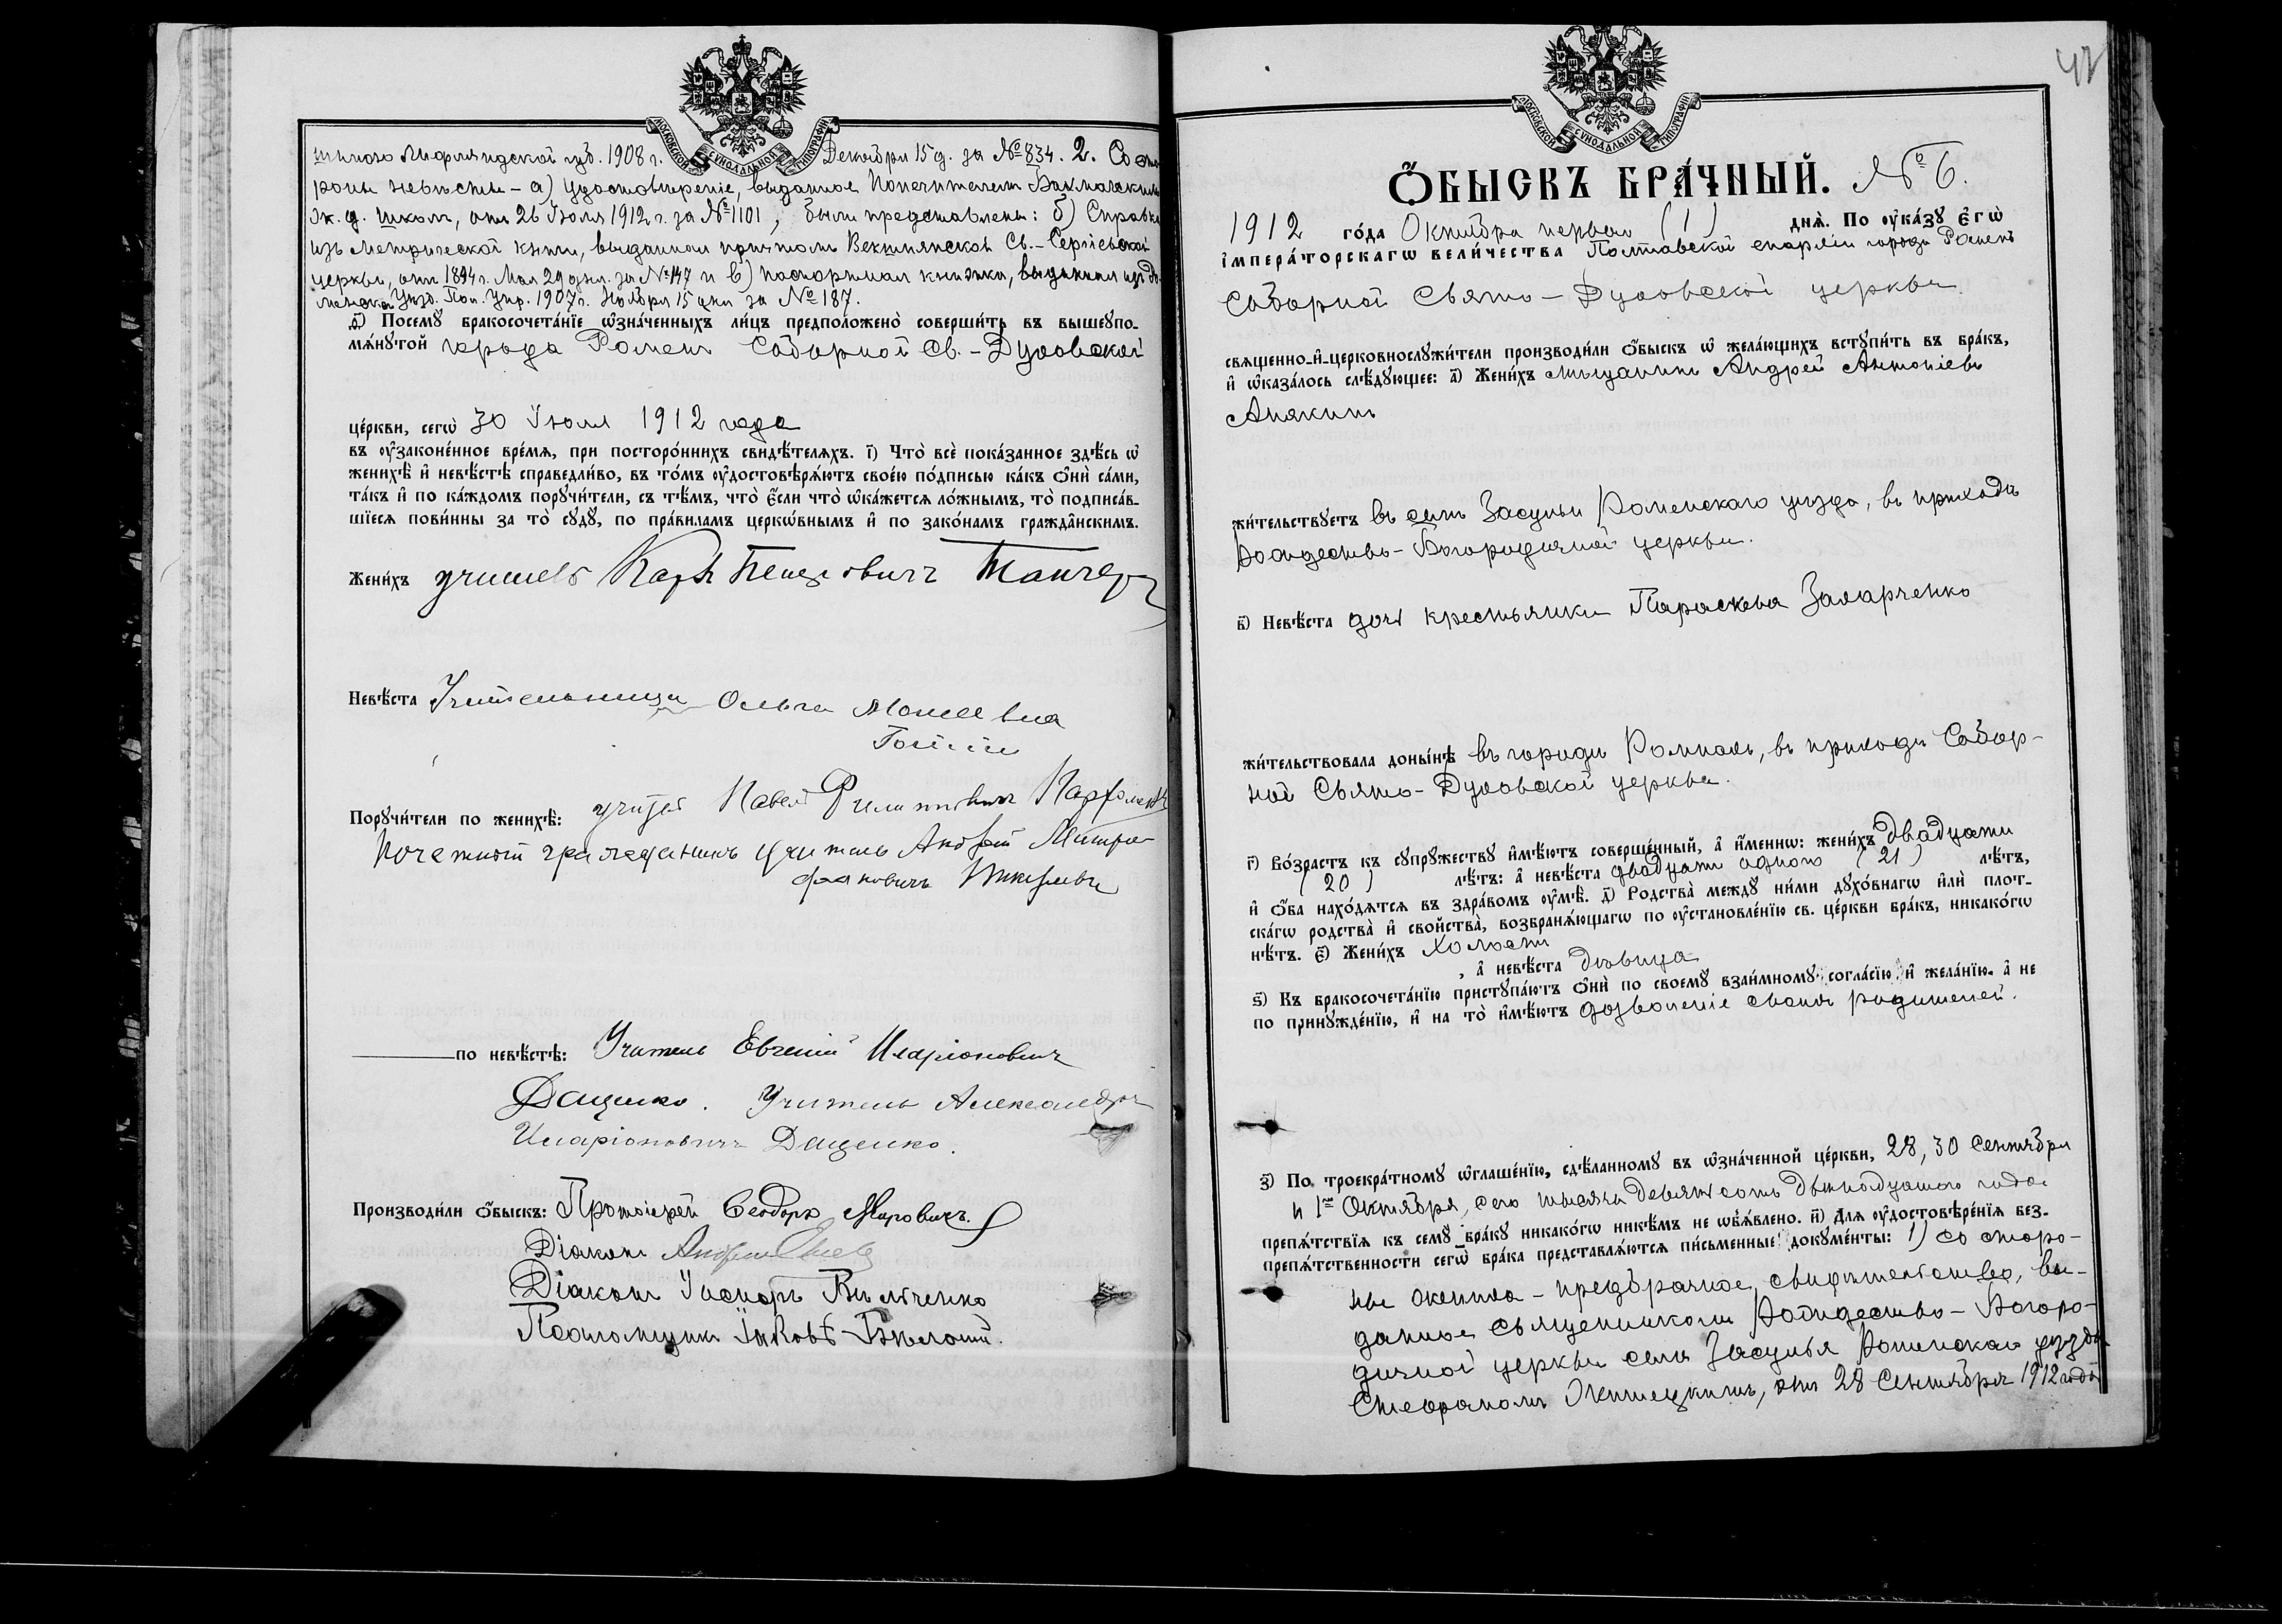 МОСКОВСКОЙ СѴНОДАЛЬНОЙ ТИПОГРАФІИ
Лифляндской губ. 1908 г. Декабря 15 д. за № 834. 2. Со сто-
роны невѣсты – а) удостовѣреніе, выданное Попечителемъ Бахмачскихъ
ж. д. школъ, отъ 26 Іюля 1912 г. за № 1101, были представлены: б) Справка
изъ метрической книги, выданная причтомъ Св. – Сергіевской
церкви, отъ 1894 г. Мая 29 дня за № 147 и в) паспортная книжка, выданная изъ
Уѣзд. Пол. Упр. 1907 г. Ноября 15 дня за № 187.
ѳ҃) Посемꙋ бракосочета́нїе ѡзна́ченныхъ ли́цъ предполо́жено соверши́ть въ вышеꙋпо-
мѧ́нꙋтой города Роменъ Соборной Св. – Духовской
це́ркви, сегѡ̀ 30 Іюля 1912 года
въ ᲂу҆зако́ненное вре́мѧ, при посторо́ннихъ свидѣ́телѧхъ. і҃) Что̀ всѐ пока́занное здѣ́сь ѡ҆
женихѣ̀ и҆ невѣ́стѣ справедли́во, въ то́мъ ᲂу҆достовѣрѧ́ютъ свое́ю по́дписью ка́къ ѻ҆нѝ са́ми,
та́къ и҆ по ка́ждомъ порꙋчи́тели, съ тѣ́мъ, что̀ є҆́сли что̀ ѡ҆ка́жетсѧ ло́жнымъ, то̀ подписа́в-
шїесѧ пови́нны за то̀ сꙋдꙋ̀, по пра́виламъ церкѡ́внымъ и҆ по зако́намъ гражда̂нскимъ.
Жени́хъ учитель Карлъ Петровичъ
Невѣ́ста Учительница Ольга Моисеевна
Порꙋчи́тели по женихѣ̀: учитель Павелъ Филипповичъ
Почетный гражданинъ учитель Андрей Митро-
фановичъ
по невѣ́стѣ: Учитель Евгеній Иларіоновичъ
Даценко. Учитель Александръ
Иларіоновичъ Даценко.
Производи́ли ѻ҆́быскъ: Протоіерей Ѳеодоръ Мировичъ.
Діаконъ Андрей
Діаконъ
Псаломщикъ Іаковъ
МОСКОВСКОЙ СѴНОДАЛЬНОЙ ТИПОГРАФІИ
47
Ѻ҆́БЫСКЪ БРА́ЧНЫЙ. № 6.
1912 го́да Октября первого (1) днѧ̀. По ᲂу҆ка́зꙋ є҆гѡ̀
і҆мпера́торскагѡ вели́чества Полтавской епархіи города Роменъ
Соборной Свято – Духовской церкви
свѧщенно-и҆-церковнослꙋжи́тели производи́ли ѻ҆́быскъ ѡ҆ жела́ющихъ встꙋпи́ть въ бра́къ,
и҆ ѡ҆каза́лось слѣ́дꙋющее: а҃) Жени́хъ мѣщанинъ Андрей Антоніевъ
Анякинъ
жи́тельствꙋетъ въ селѣ Засульи Роменскаго уѣзда, въ приходѣ
Рождество-Богородичной церкви.
в҃) Невѣ́ста дочь крестьянки Параскева Захарченко
жи́тельствовала доны́нѣ въ городѣ Ромнахъ, въ приходѣ Собор-
ной Свято-Духовской церкви.
г҃) Во́зрастъ къ сꙋпрꙋ́жествꙋ и҆мѣ́ютъ соверше́нный, а҆ и҆́меннѡ: жени́хъ двадцати
(20) лѣ́тъ: а҆ невѣ́ста двадцати одного (21) лѣ́тъ,
и҆ ѻ҆́ба нахо́дѧтсѧ въ здра́вомъ ᲂу҆мѣ̀. д҃) Родства̀ междꙋ̀ ни́ми дꙋхо́внагѡ и҆лѝ плот-
ска́гѡ родства̀ и҆ свойства̀, возбранѧ́ющагѡ по ᲂу҆становле́нїю св. це́ркви бра́къ, никако́гѡ
нѣ́тъ. є҃) Жени́хъ холостъ
, а҆ невѣ́ста дѣвица
ѕ҃) Къ бракосочета́нїю пристꙋпа́ютъ ѻ҆нѝ по своемꙋ̀ взаи́мномꙋ согла́сїю и҆ жела́нїю, а҆ не
по принꙋжде́нїю, и҆ на то̀ и҆мѣ́ютъ дозволеніе своихъ родителей.
з҃) По троекра́тномꙋ ѡ҆глаше́нїю, сдѣ́ланномꙋ въ ѡ҆зна́ченной це́ркви, 28, 30 Сентября
и 1го Октября, сего тысяча девятьсотъ двѣнадцатаго года
препѧ́тствїѧ къ семꙋ̀ бра́кꙋ никако́гѡ никѣ́мъ не ѡ҆б̾ѧ́влено. и҃) Длѧ ᲂу҆достовѣре́нїѧ без-
препѧ́тственности сегѡ̀ бра́ка представлѧ́ютсѧ пи́сьменные докꙋме́нты: 1) со сторо-
ны жениха – предбрачное свидѣтельство, вы-
данное священникомъ Рождество – Богоро-
дичной церкви села Засулья Роменскаго уѣзда
Стефаномъ отъ 28 Сентября 1912 года